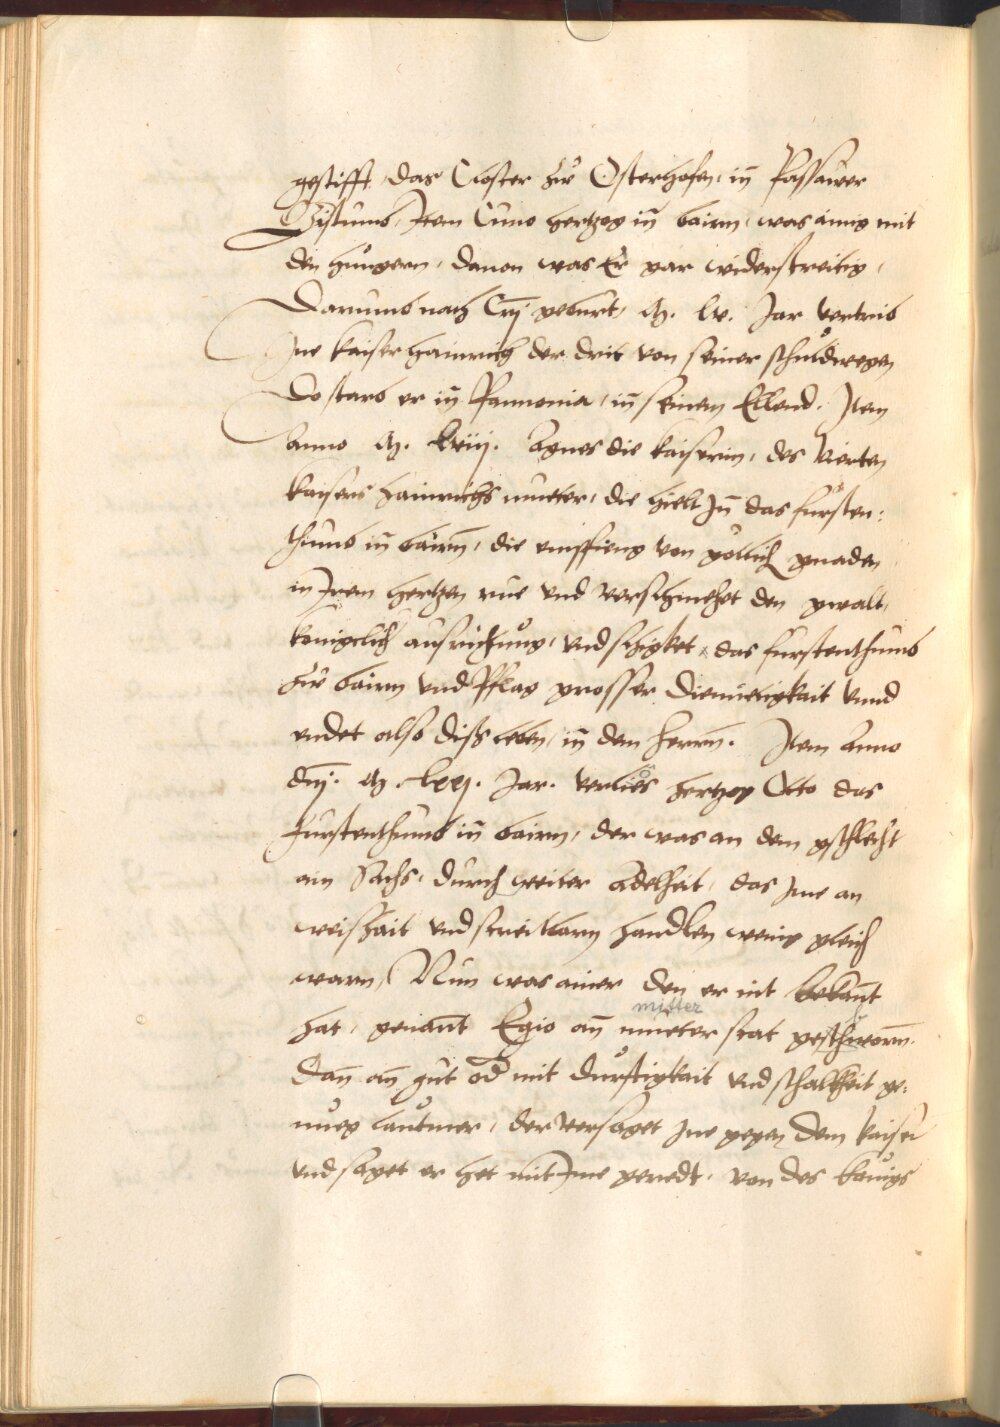 gestifft, das Closter zů Osterhofen, in Passawer
Bistumb, Item Cuno hertzog in bairn, was ainig mit
den hungern, dauon was Er gar widerstreitig,
Darumb nach Cri geburt, M. lv. Jar vertrib
Jne kaiser hainrich der drit von seiner schuldwegen
Do starb er in Pannonia, in seinem Ellend. Item
anno M. lviij. Agnes die kaiserin, des Vierten
kaisers hainrichs mueter, die hielt Jn das fürsten:
thumb in bairn, die empfieng von gotlich gnaden
in Jrem hertzen rue vnd verschmehet den gwalt,
koniglich ausrichung, vnd schigket, das furstenthumb
zů bairn vnd Pflag grosser diemietigkait vnnd
endet also diss leben, in dem herrn. Item anno
dnj. M. lxxj. Jar. verlies hertzog Otto das
furstenthumb in bairn, der was an dem gschlecht
ain Sachs, durch weiter Adelheit, das Jme an
weishait vnd streitbarn handlen wenig gleich
warn, Nun was ainer den er nit bekant
hat, genant Egio an mueter stat geschworn.
mitter
Dan an gut od mit durstigkait vnd schalkheit ge:
nueg lautmer, der versaget Jne gegen dem kaiser
vnd saget er het mit Jme geredt, von des kunigs